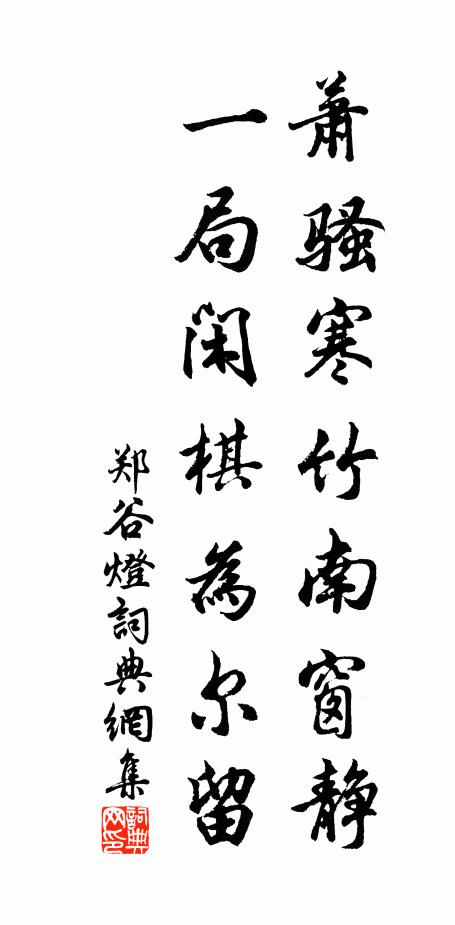 蕭騷寒竹南窗静
一局闲棋為尔留
郑谷燈詞典網集
詞典网印